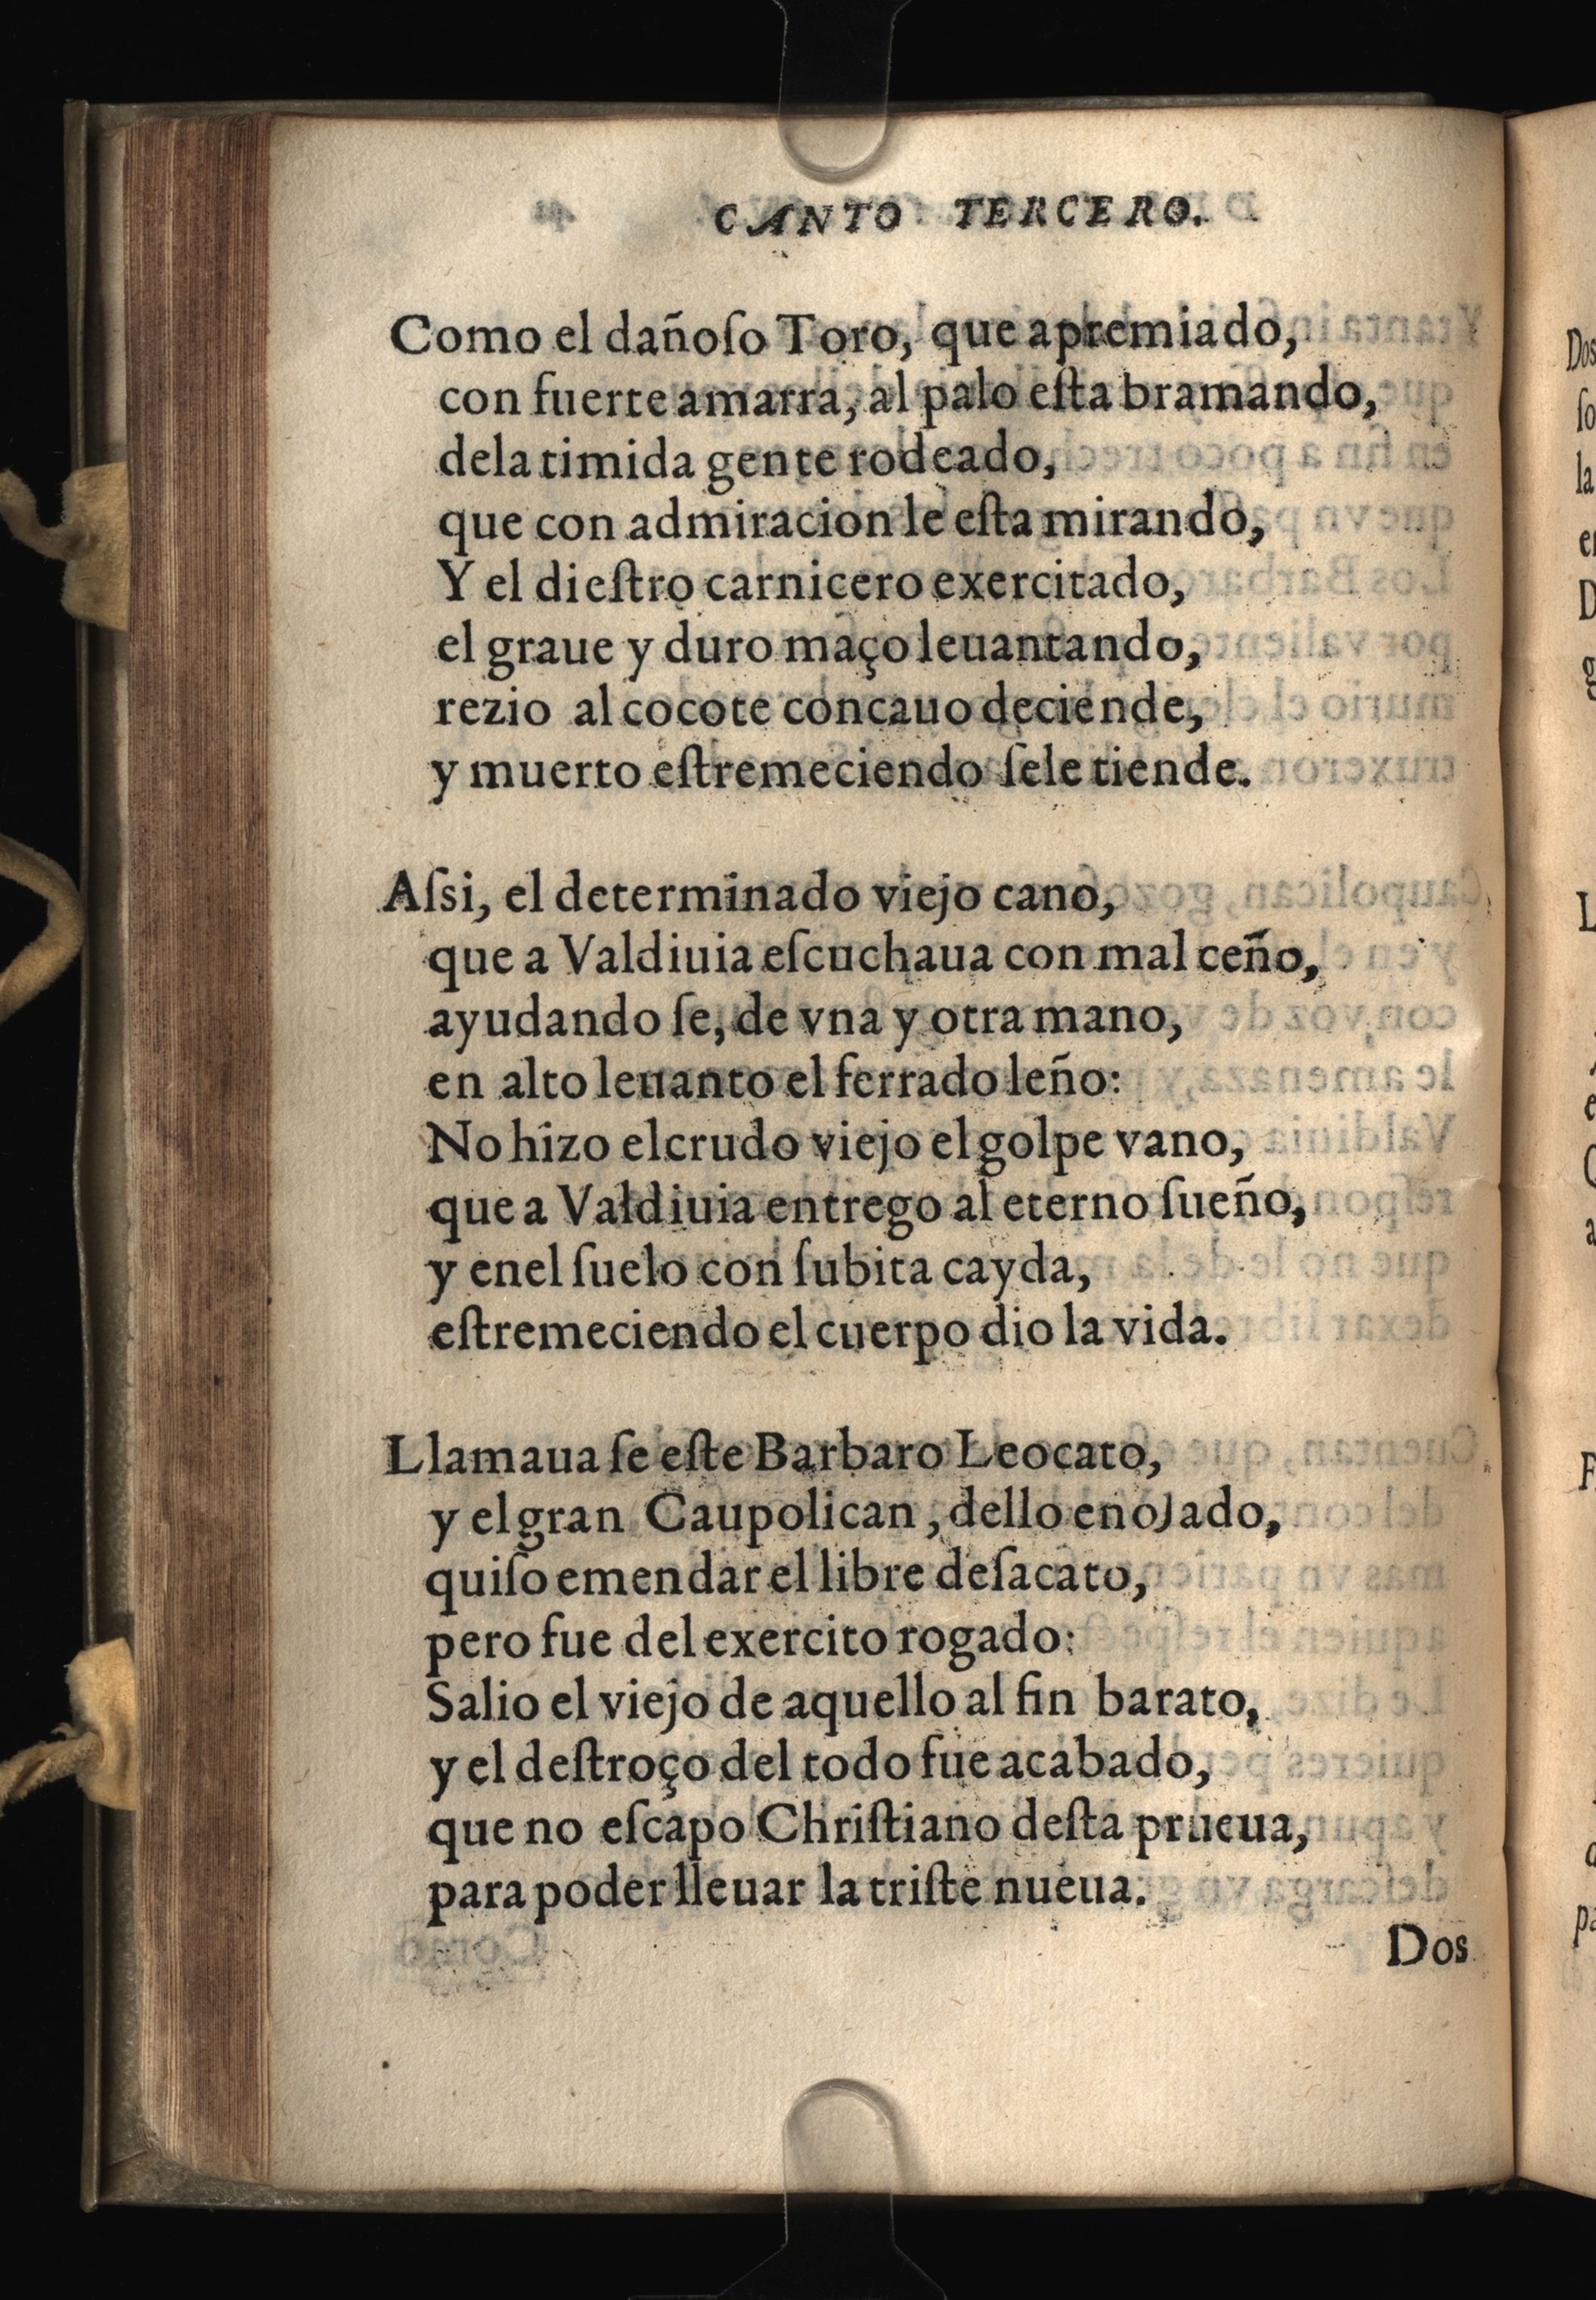 CANTO TERCERO.
Como el dañoſo Toro, que apremiado,
con fuerte amarra, al palo eſta bramando,
dela timida gente rodeado,
que con admiracion le eſta mirando,
Y el dieſtro carnicero exercitado,
el graue y duro maço leuantando,
rezio al cocote concauo deciende,
y muerto eſtremeciendo ſele tiende.
Aſsi, el determinado viejo cano,
que a Valdiuia eſcuchaua con mal ceño,
ayudando ſe, de vna y otra mano,
en alto leuanto el ferrado leño:
No hizo elcrudo viejo el golpe vano,
que a Valdiuia entrego al eterno ſueño,
y enel ſuelo con ſubita cayda,
eſtremeciendo el cuerpo dio la vida.
Llamaua ſe eſte Barbaro Leocato,
y el gran Caupolican, dello enojado,
quiſo emendar el libre deſacato,
pero fue del exercito rogado:
Salio el viejo de aquello al fin barato,
y el deſtroço del todo fue acabado,
que no eſcapo Chriſtiano deſta prueua,
para poder lleuar la triſte nueua.
Dos